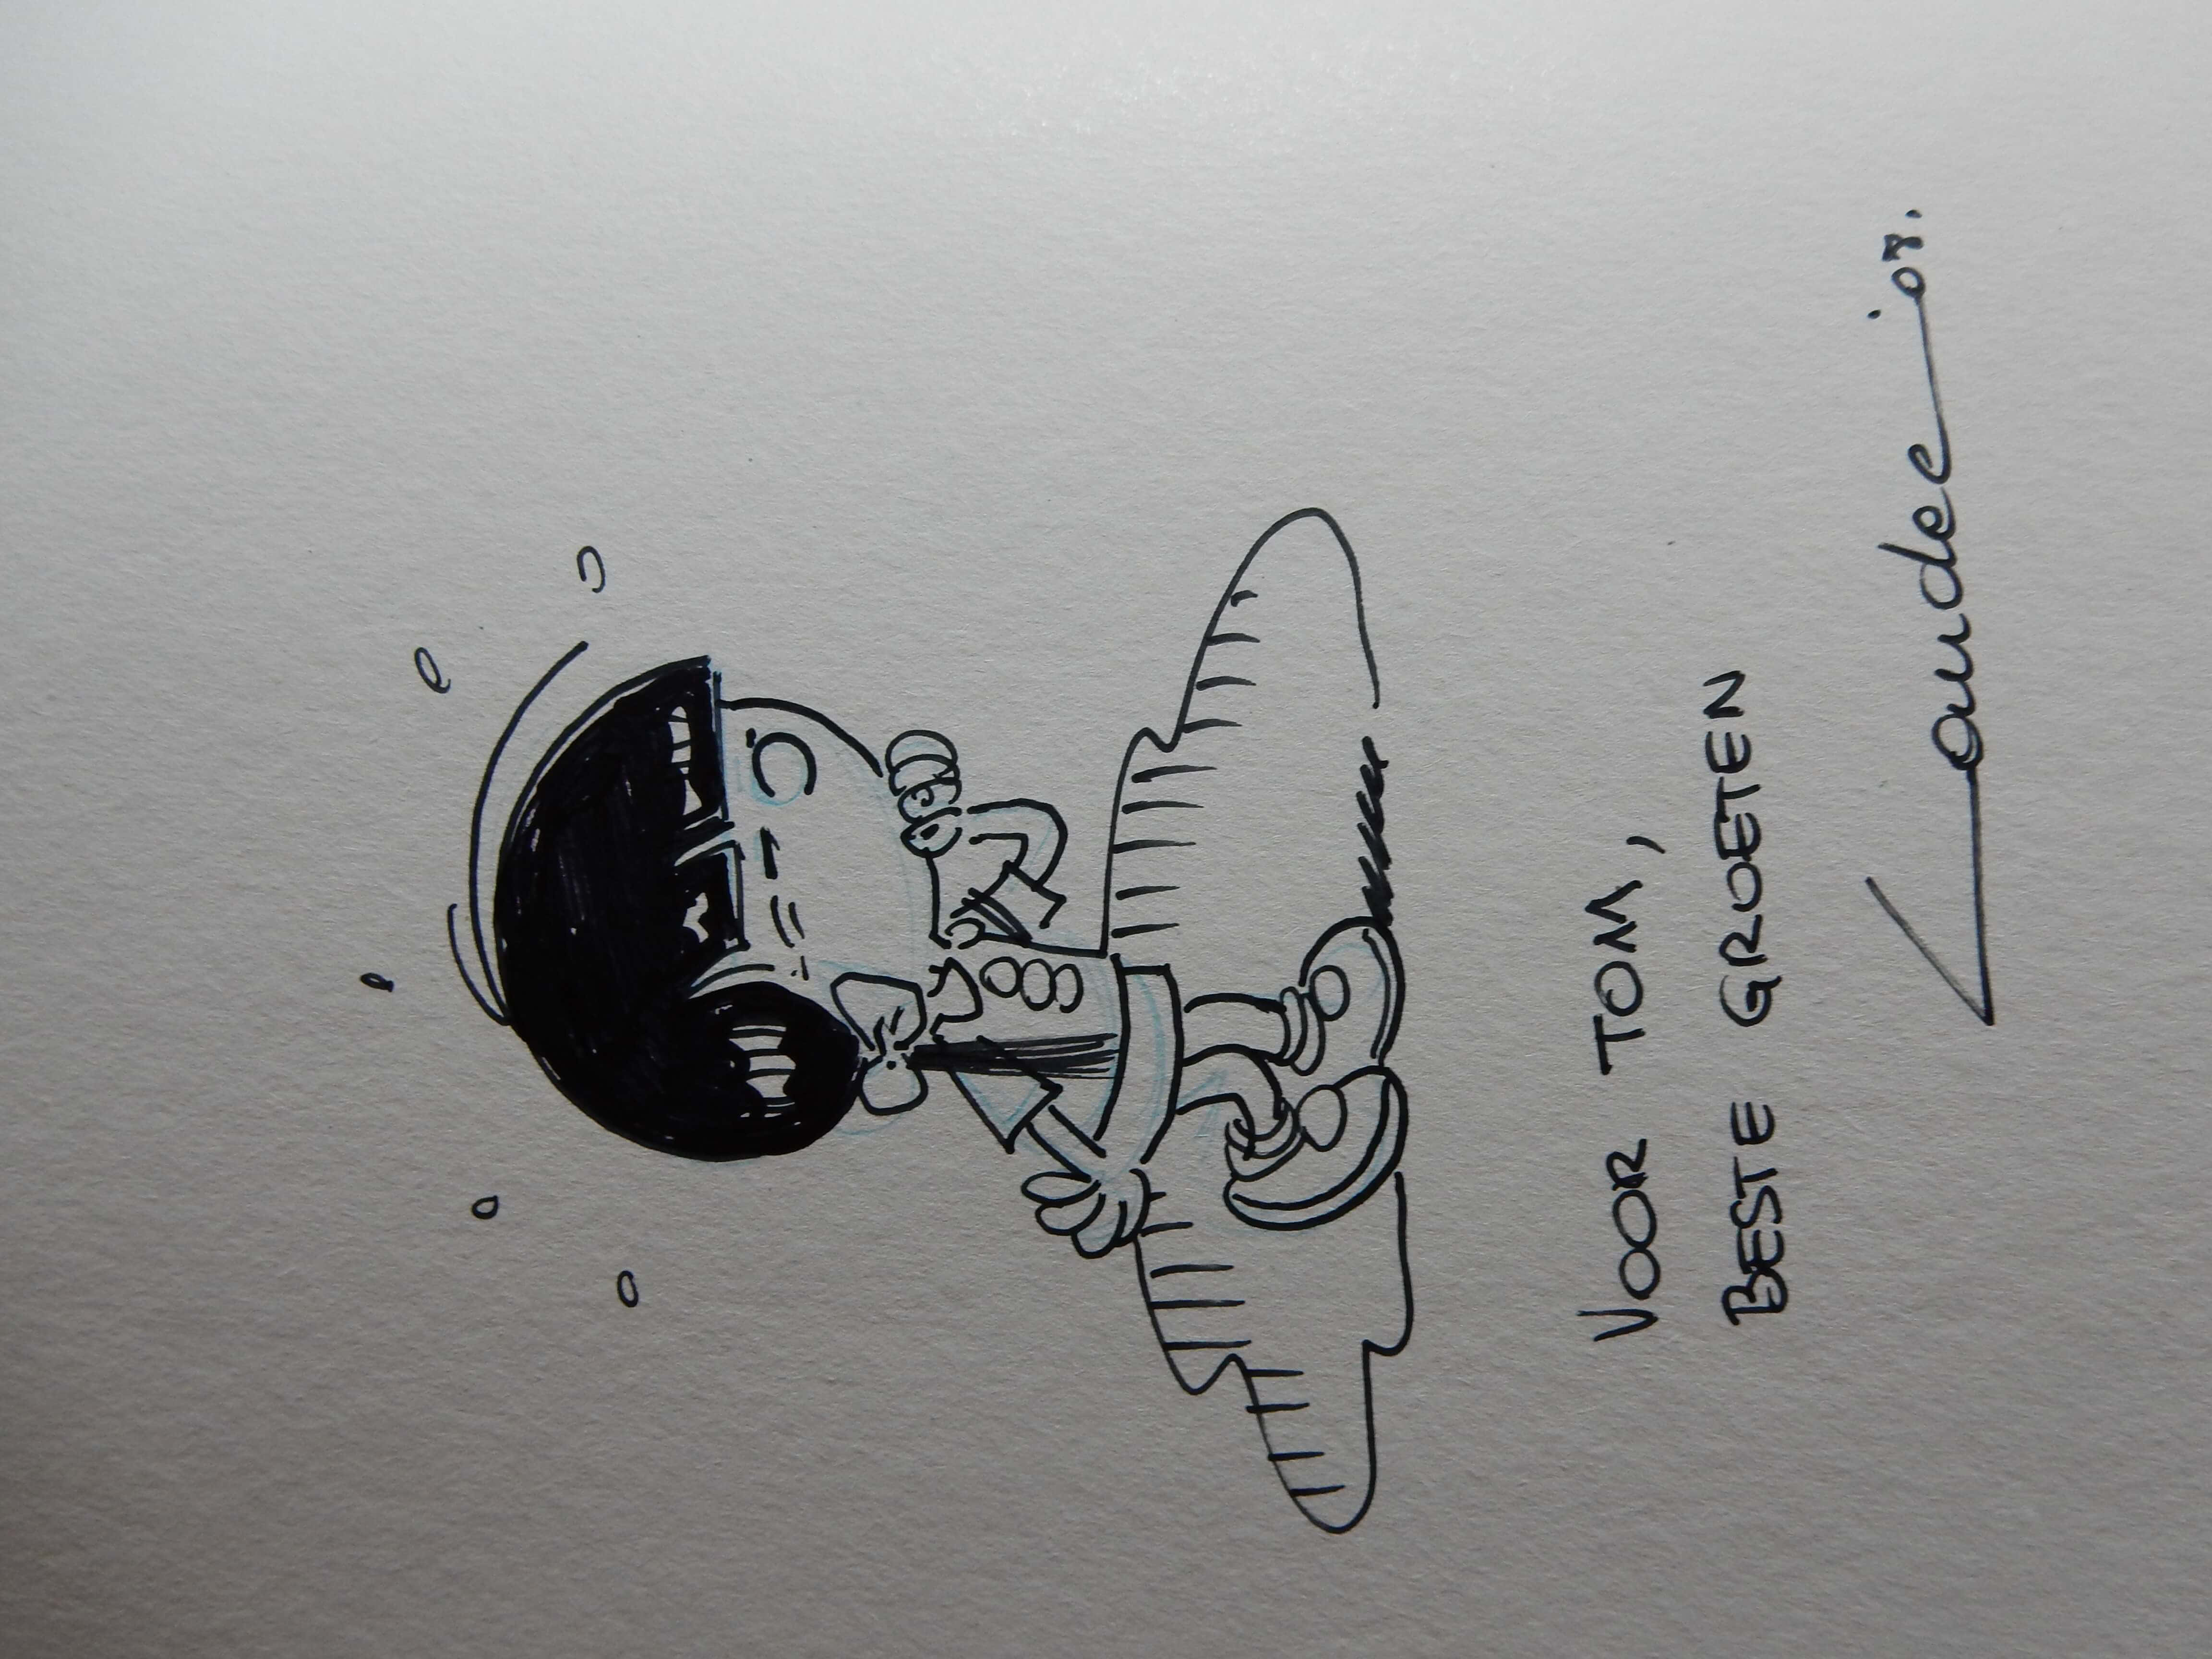 VOOR TOM,
BESTE GROETEN
Laudec '08.